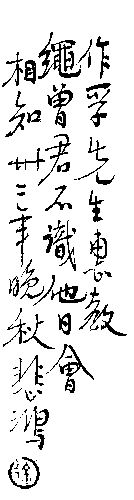 作孚先生惠教
繩曾君不識他日會
相知 卅三年晚秋悲鴻
徐